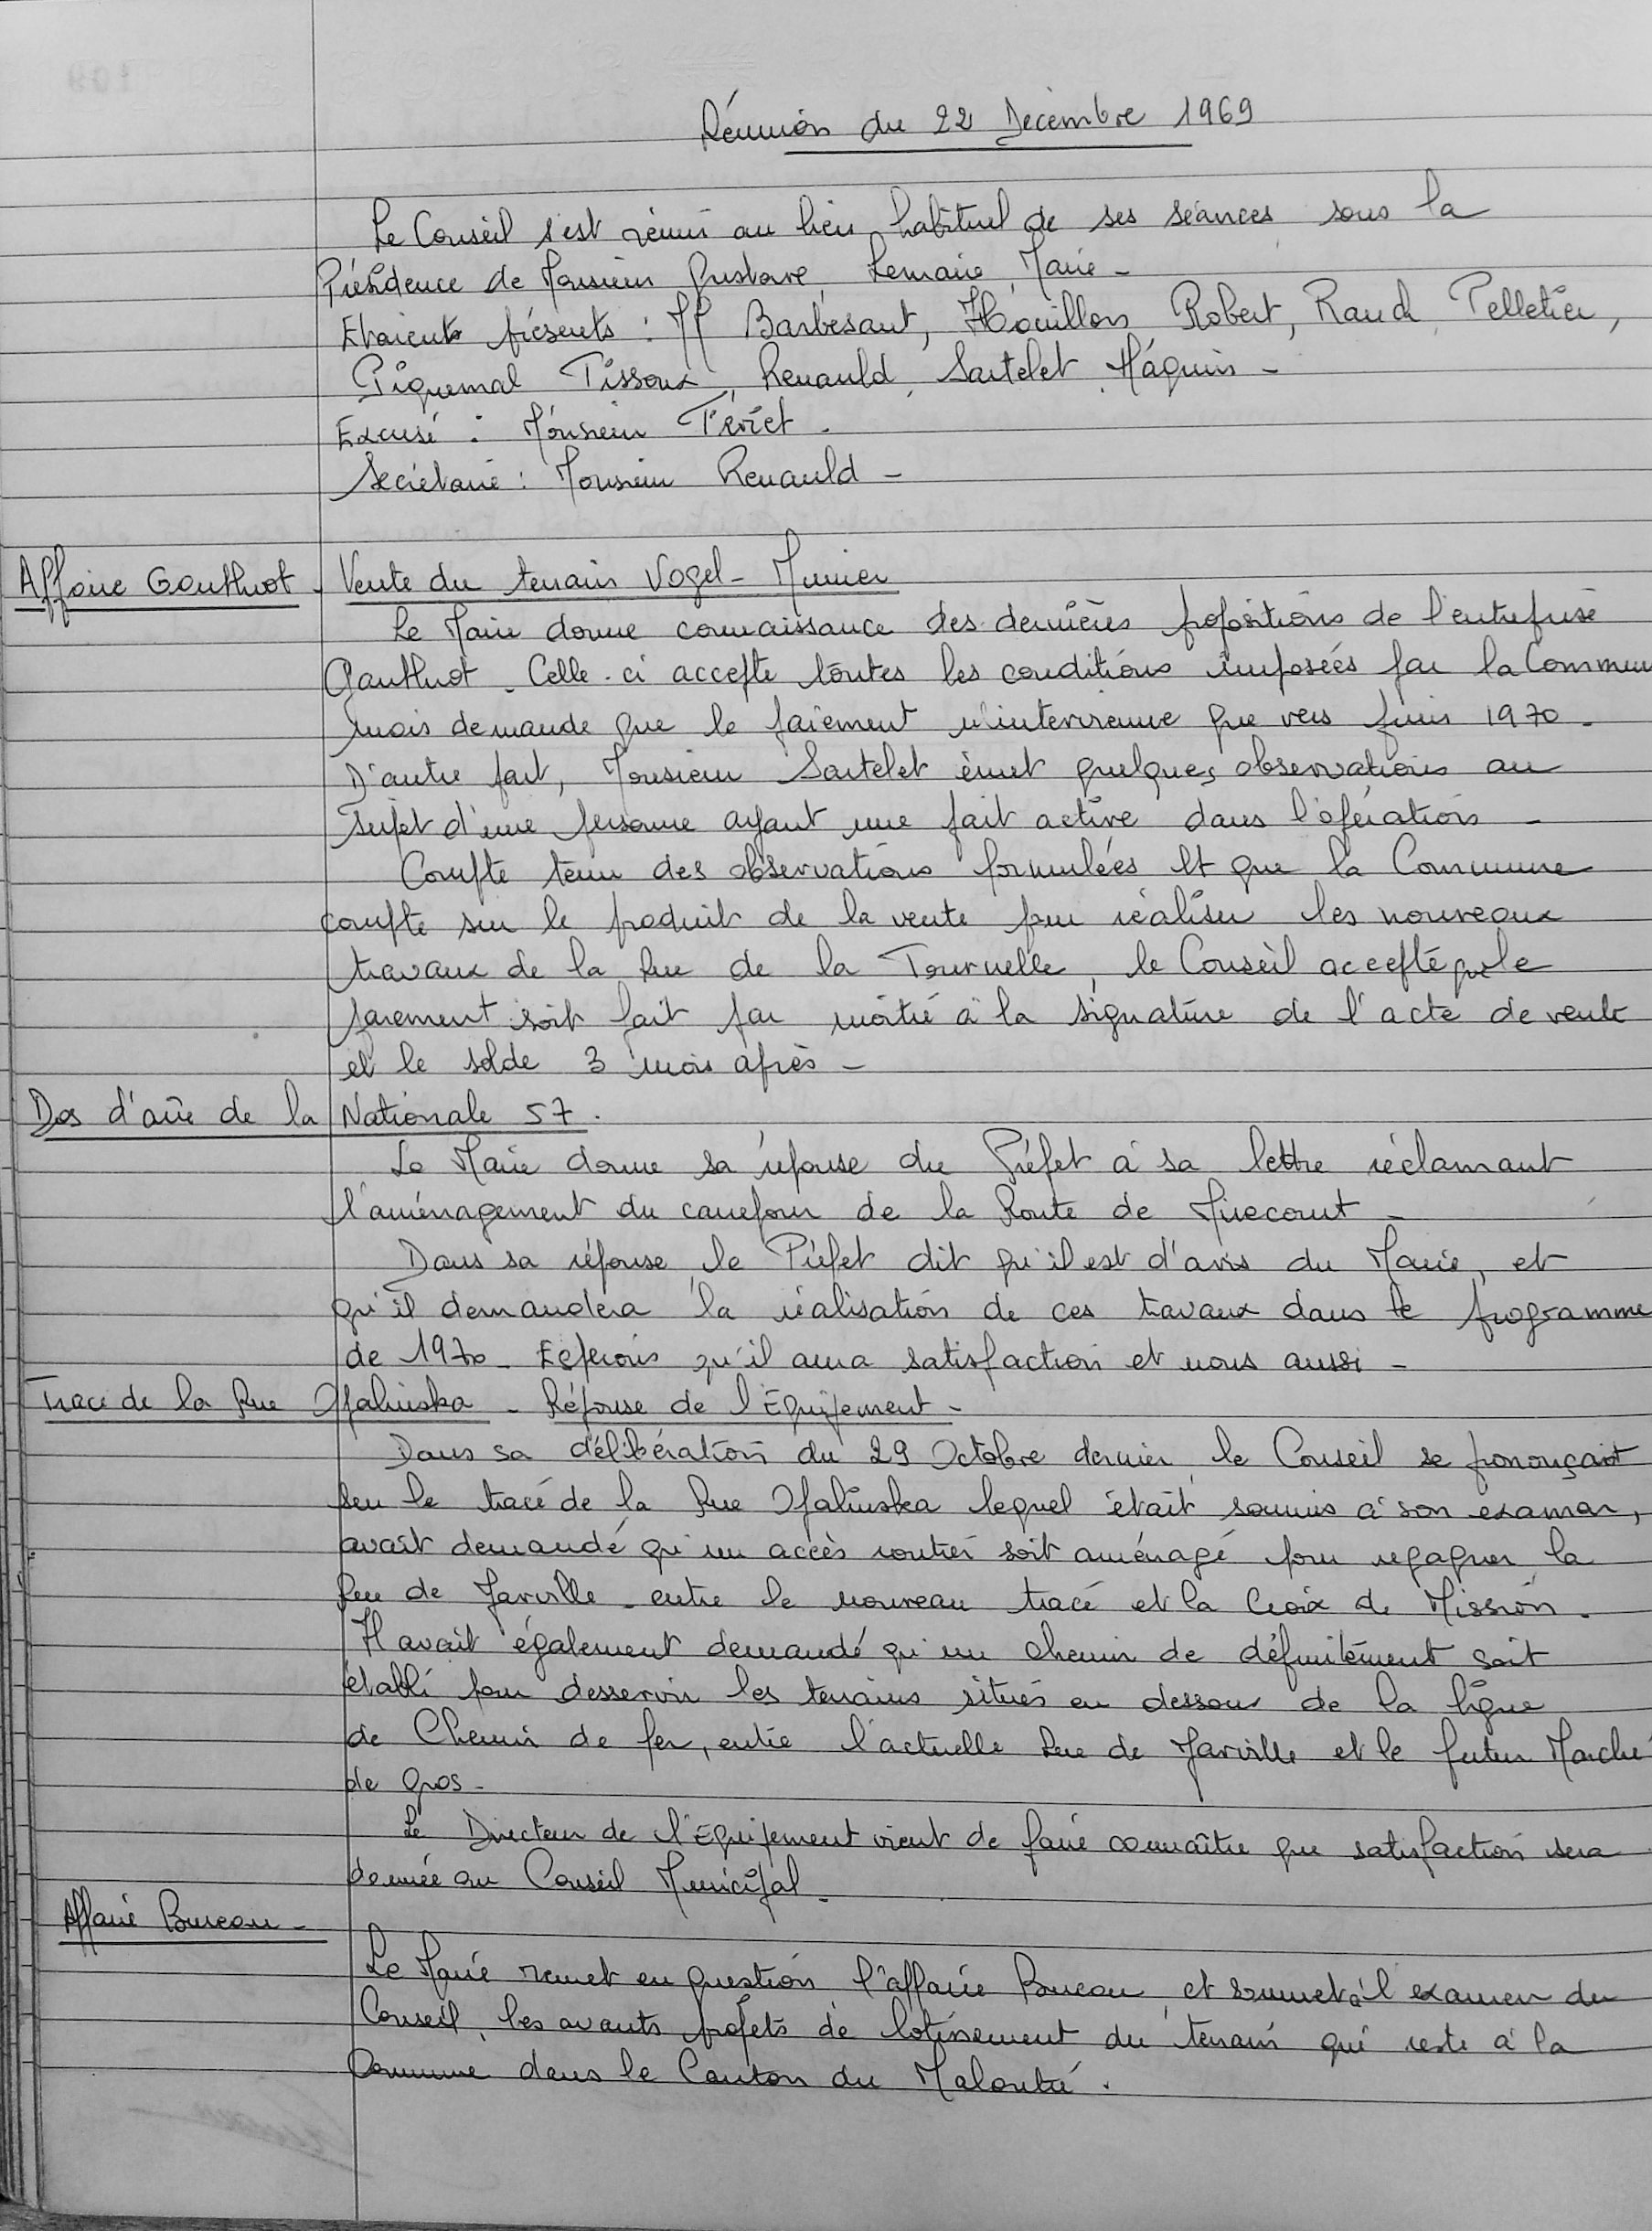 Réunion du 22 Décembre 1969
Le Conseil s'est réuni au lieu habituel de ses séances sous la
Présidence de Monsieur Gustave Lemaire, Maire -
Etaients présents : MM Barbesant, Houillon Robert, Rauch, Pelletier,
Piquemal Tissoux, Renauld, Sartelet Haquin -
Excusé : Monsieur Tériet.
Secrétaire : Monsieur Renauld -
Affaire Gauthrot - Vente du terrain Vogel - Munier
Le Maire donne connaissance des dernières propositions de l'entreprise
Gauthrot. Celle-ci accepte toutes les conditions imposées par la Commune
mais demande que le paiement n'intervienne que vers juin 1970.
D'autre part, Monsieur Sartelet émet quelques observations au
sujet d'une personne ayant une part active dans l'opération -
Compte tenu des observations formulées et que la Commune
compte sur le produit de la vente pour réaliser les nouveaux
travaux de la Rue de la Tournelle, le Conseil accepte que le
paiement soit fait par moitié à la signature de l'acte de vente
et le solde 3 mois après -
Dos d'âne de la Nationale 57.
Le Maire donne sa réponse du Préfet à sa lettre réclamant
l'aménagement du carrefour de la Route de Mirecourt -
Dans sa réponse le Préfet dit qu'il est d'avis du Maire, et
qu'il demandera la réalisation de ces travaux dans le programme
de 1970. Espérons qu'il aura satisfaction et nous aussi -
Tracé de la Rue Opalinska - Réponse de l'Equipement -
Dans sa délibération du 29 Octobre dernier, le Conseil se prononçait
sur le tracé de la Rue Opalinska lequel était soumis à son examen,
avait demandé qu'un accès routier soit aménagé pour regagner la
Rue de Jarville - entre le nouveau tracé et la Croix de Mission.
Il avait également demandé qu'un chemin de défruitement soit
établi pour desservir les terrains situés en dessous de la ligne
de Chemin de fer, entre l'actuelle Rue de Jarville et le futur Marché
de Gros -
Le Directeur de l'Equipement vient de faire connaître que satisfaction sera
donnée au Conseil Municipal.
Affaire Bureau -
Le Maire remet en question l'affaire Bureau, et soumet à l'examen du
Conseil, les avants projets de lotissement du terrain qui reste à la
Commune dans le Canton du Maloutré.